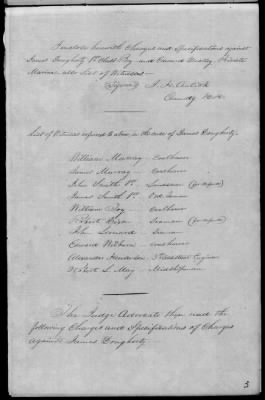 I enclose herewith Charges and Specifications against
James Dougherty 1st Class Boy and Edward Private
Marine also list of Witnesses —
Signed J. H.
Comdg
List of Witnesses referred to above, in the case of James Dougherty.
William Murray — Coalheaver
James Murray — Coalheaver
John Smith 1st — Landsman
James Smith 1st — Ord. Seaman
William — Coalheaver
Robert — Seaman
John Leonard — Seaman
Edward — Coalheaver
Alexander Henderson — Asst Engineer
Robert L. May — Midshipman
The Judge Advocate then read the
following Charges and Specifications of Charges
against James Dougherty.
3